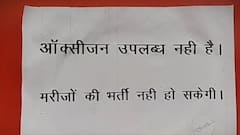 ऑक्सीजन उपलब्ध नही है।
मरीजों की भर्ती नही हो सकेगी।